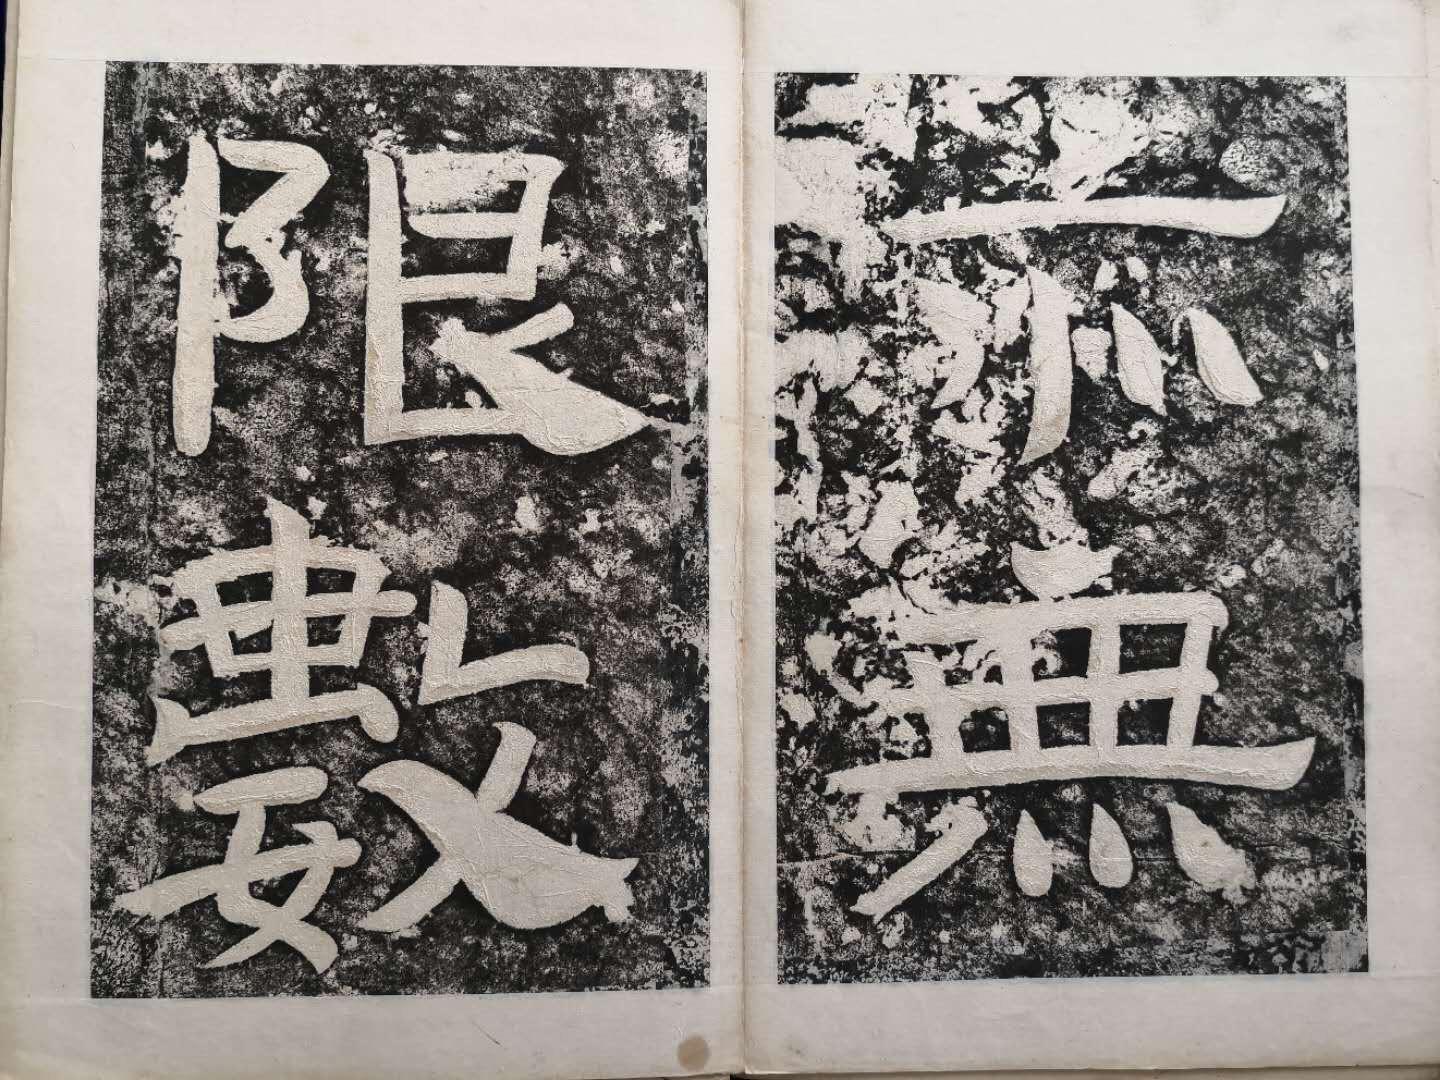 亦無
限數